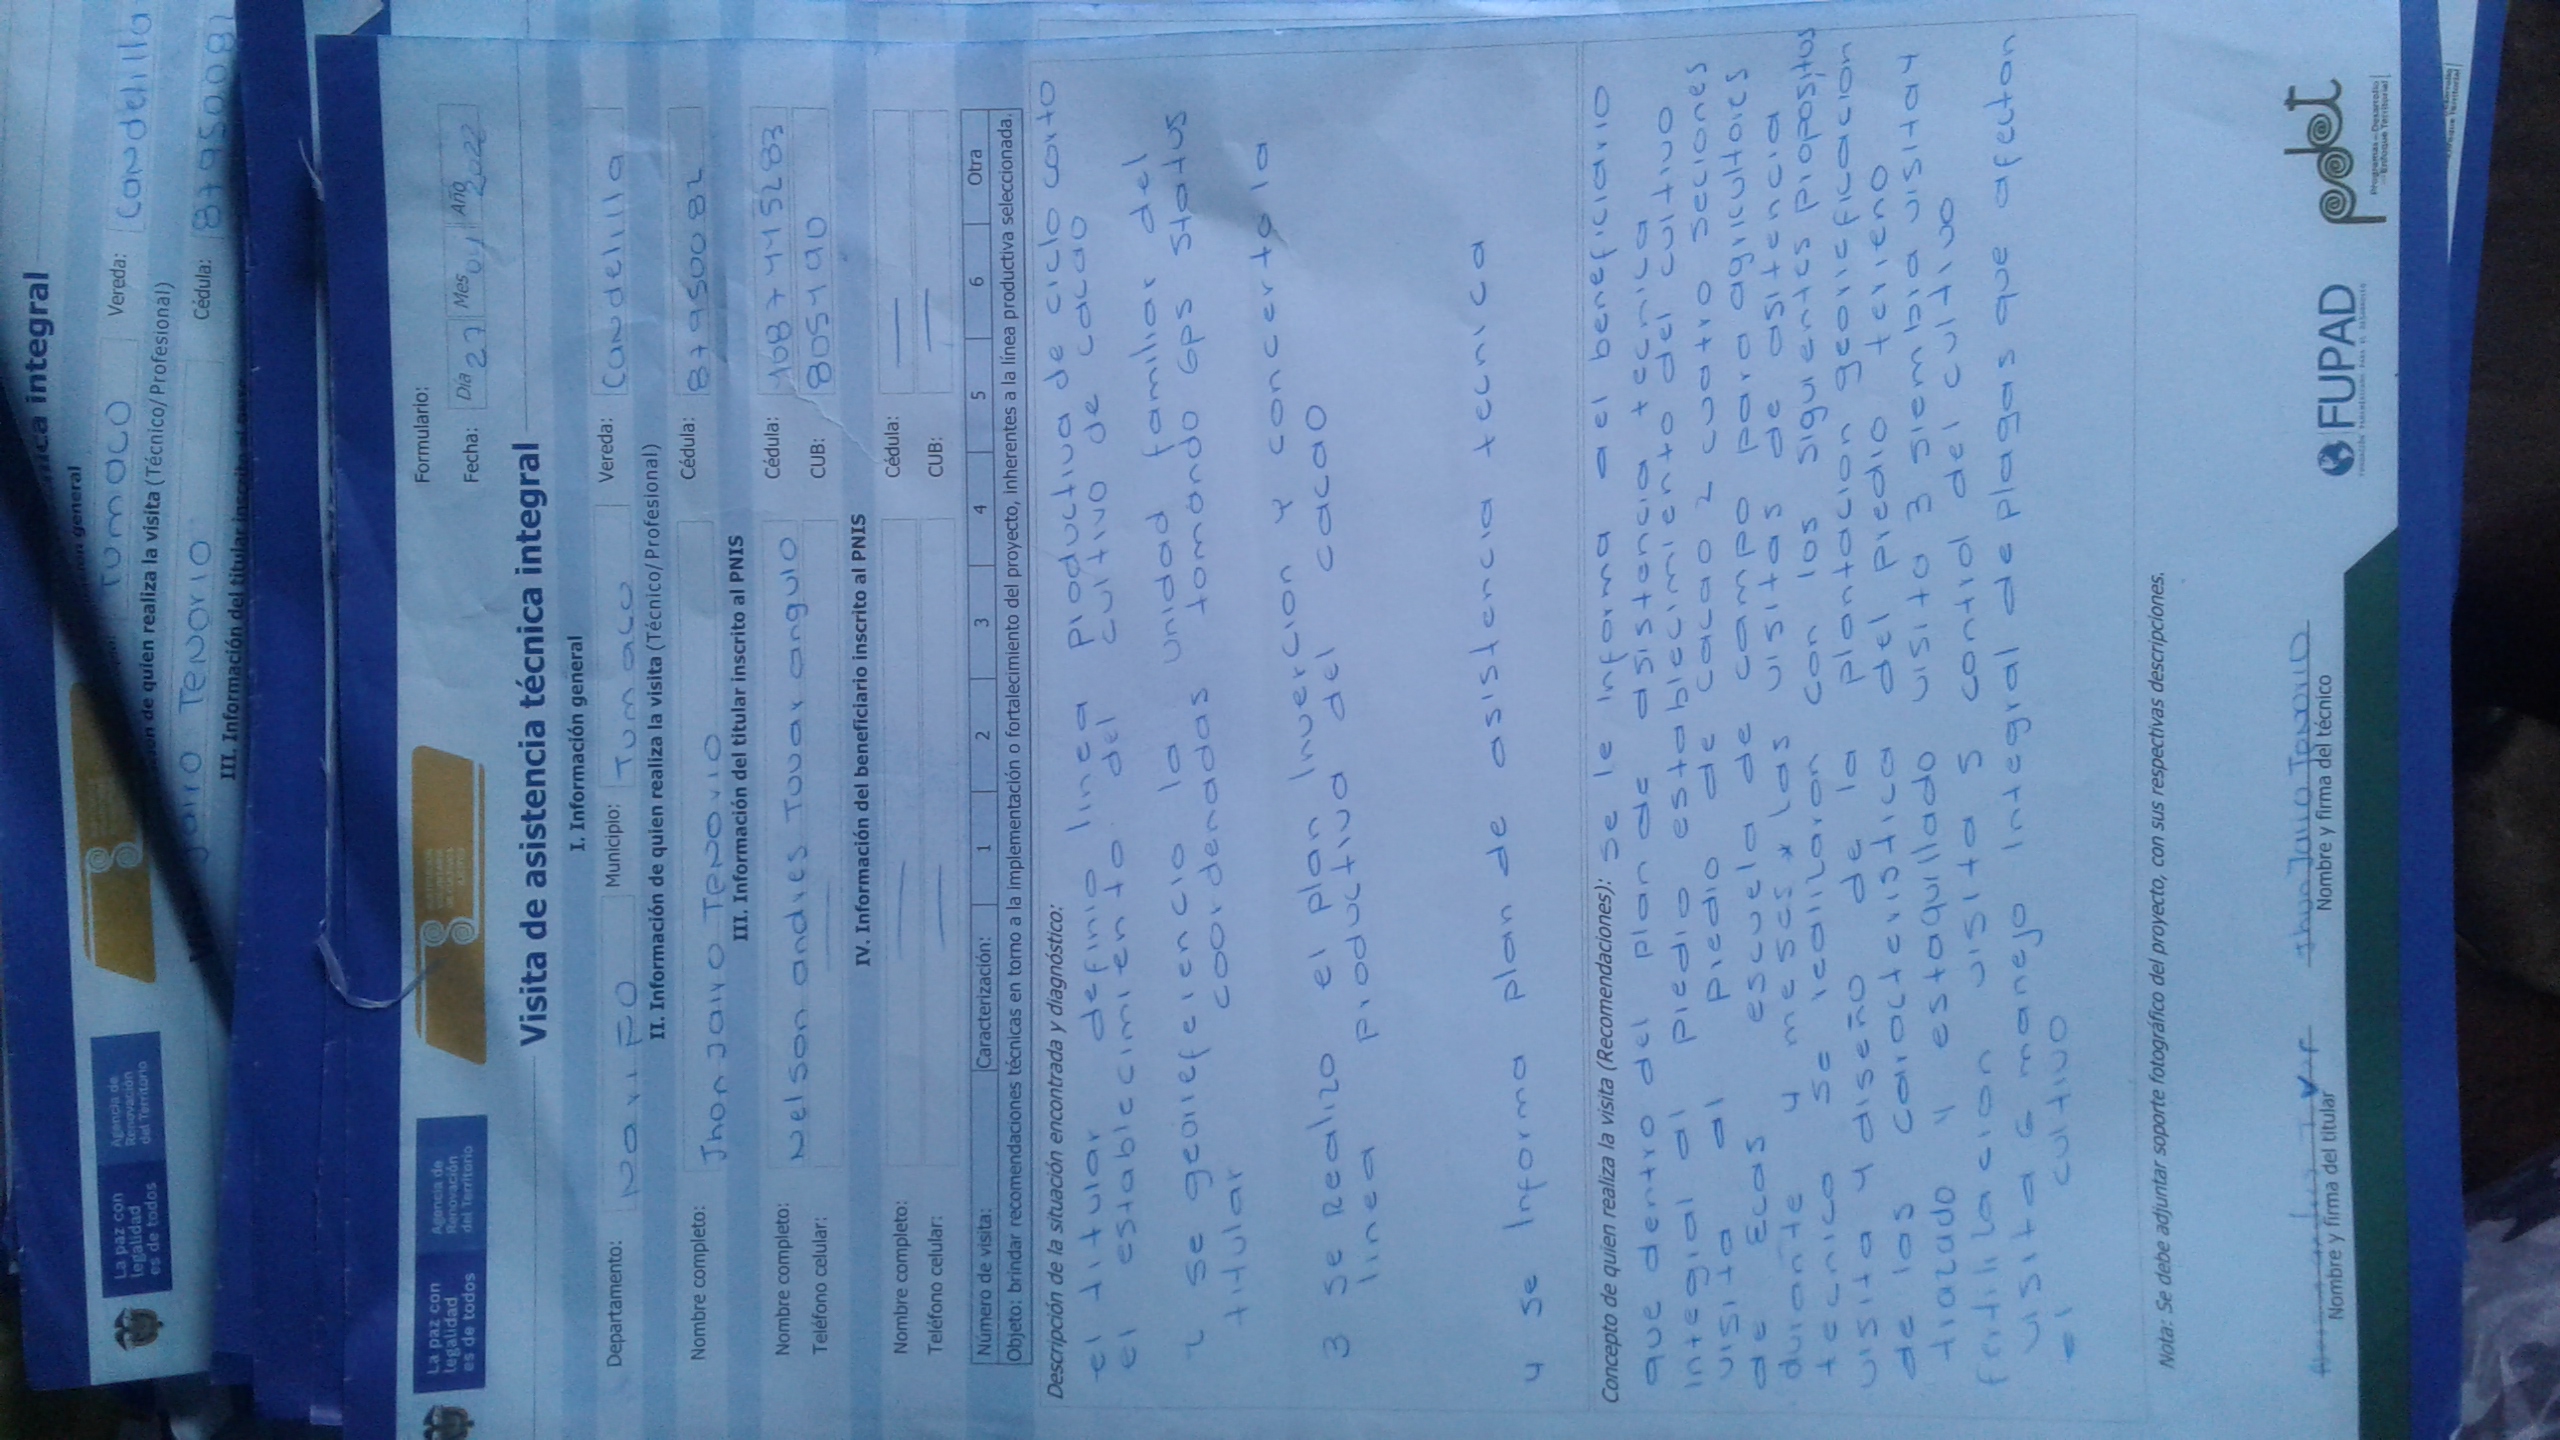 nica integral
general
Tumaco
Vereda:
Candelilla
de quien realiza la visita (Técnico/Profesional)
Jairo Tenorio
Cédula:
III. Información del titular inscrito al
La paz con
legalidad
es de todos
Agencia de
Renovación
del Territorio
La paz con
legalidad
es de todos
Agencia de
Renovación
del Territorio
Formulario:
Fecha:
Día 27
Mes 04
Año 2022
Visita de asistencia técnica integral
I. Información general
Departamento:
Nariño
Municipio:
Tumaco
Vereda:
Candelilla
II. Información de quien realiza la visita (Técnico/Profesional)
Nombre completo:
Jhon Jairo Tenorio
Cédula:
87950082
III. Información del titular inscrito al PNIS
Nombre completo:
Nelson andres Tovar angulo
Cédula:
1087445283
Teléfono celular:
CUB:
IV. Información del beneficiario inscrito al PNIS
Nombre completo:
Cédula:
Teléfono celular:
CUB:
Número de visita:
Caracterización:
1
2
3
4
5
6
Otra
Objeto: brindar recomendaciones técnicas en torno a la implementación o fortalecimiento del proyecto, inherentes a la línea productiva seleccionada.
Descripción de la situación encontrada y diagnóstico:
el titular definio linea productiva de ciclo corto
el establecimiento del cultivo de cacao
2 se georreferencio la unidad familiar del
titular coordenadas tomando Gps status
3 se Realizo el plan Invercion y concerto la
linea productiva del cacao
4 se Informa plan de asistencia tecnica
Concepto de quien realiza la visita (Recomendaciones): se le informa a el beneficiario
que dentro del plan de asistencia tecnica
integral al predio establecimiento del cultivo
visita al predio de cacao 2 cuatro secciones
de Ecas escuela de campo para agricultores
durante 4 meses * las visitas de asitencia
tecnica se realizaron con los siguientes propositos
visita 4 diseño de la plantacion georieficacion
de las caracteristica del predio terreno
trazado y estaquillado visita 3 siembra visita 4
fertilizacion visita 5 control del cultivo
visita 6 manejo integral de plagas que afectan
el cultivo
Nota: Se debe adjuntar soporte fotográfico del proyecto, con sus respectivas descripciones.
Nombre y firma del titular
Jhon Jairo Tenorio
Nombre y firma del técnico
FUPAD
pdet
Programas de Desarrollo
con Enfoque Territorial